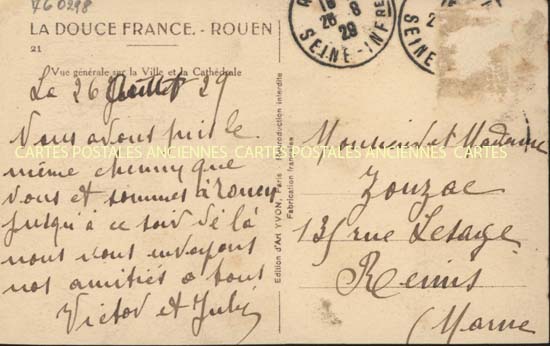 460298
LA DOUCE FRANCE. - ROUEN
21
Vue générale sur la Ville et la Cathédrale
Le 26 29
Nous avons pris le
même chemin que
vous et sommes à rouen
jusqu'à ce soir de là
nous vous envoyons
nos amitiés a tous
Victor et
Edition d'Art YVON, Paris Reproduction interdite
Fabrication française
Monsieur et Madame
Zouzac
135 rue Lesage
Reims
Marne
26 8
29
SEINE-INFRE
SEINE
CARTES POSTALES ANCIENNES CARTES POSTALES ANCIENNES CARTES POSTALES ANCIENNES